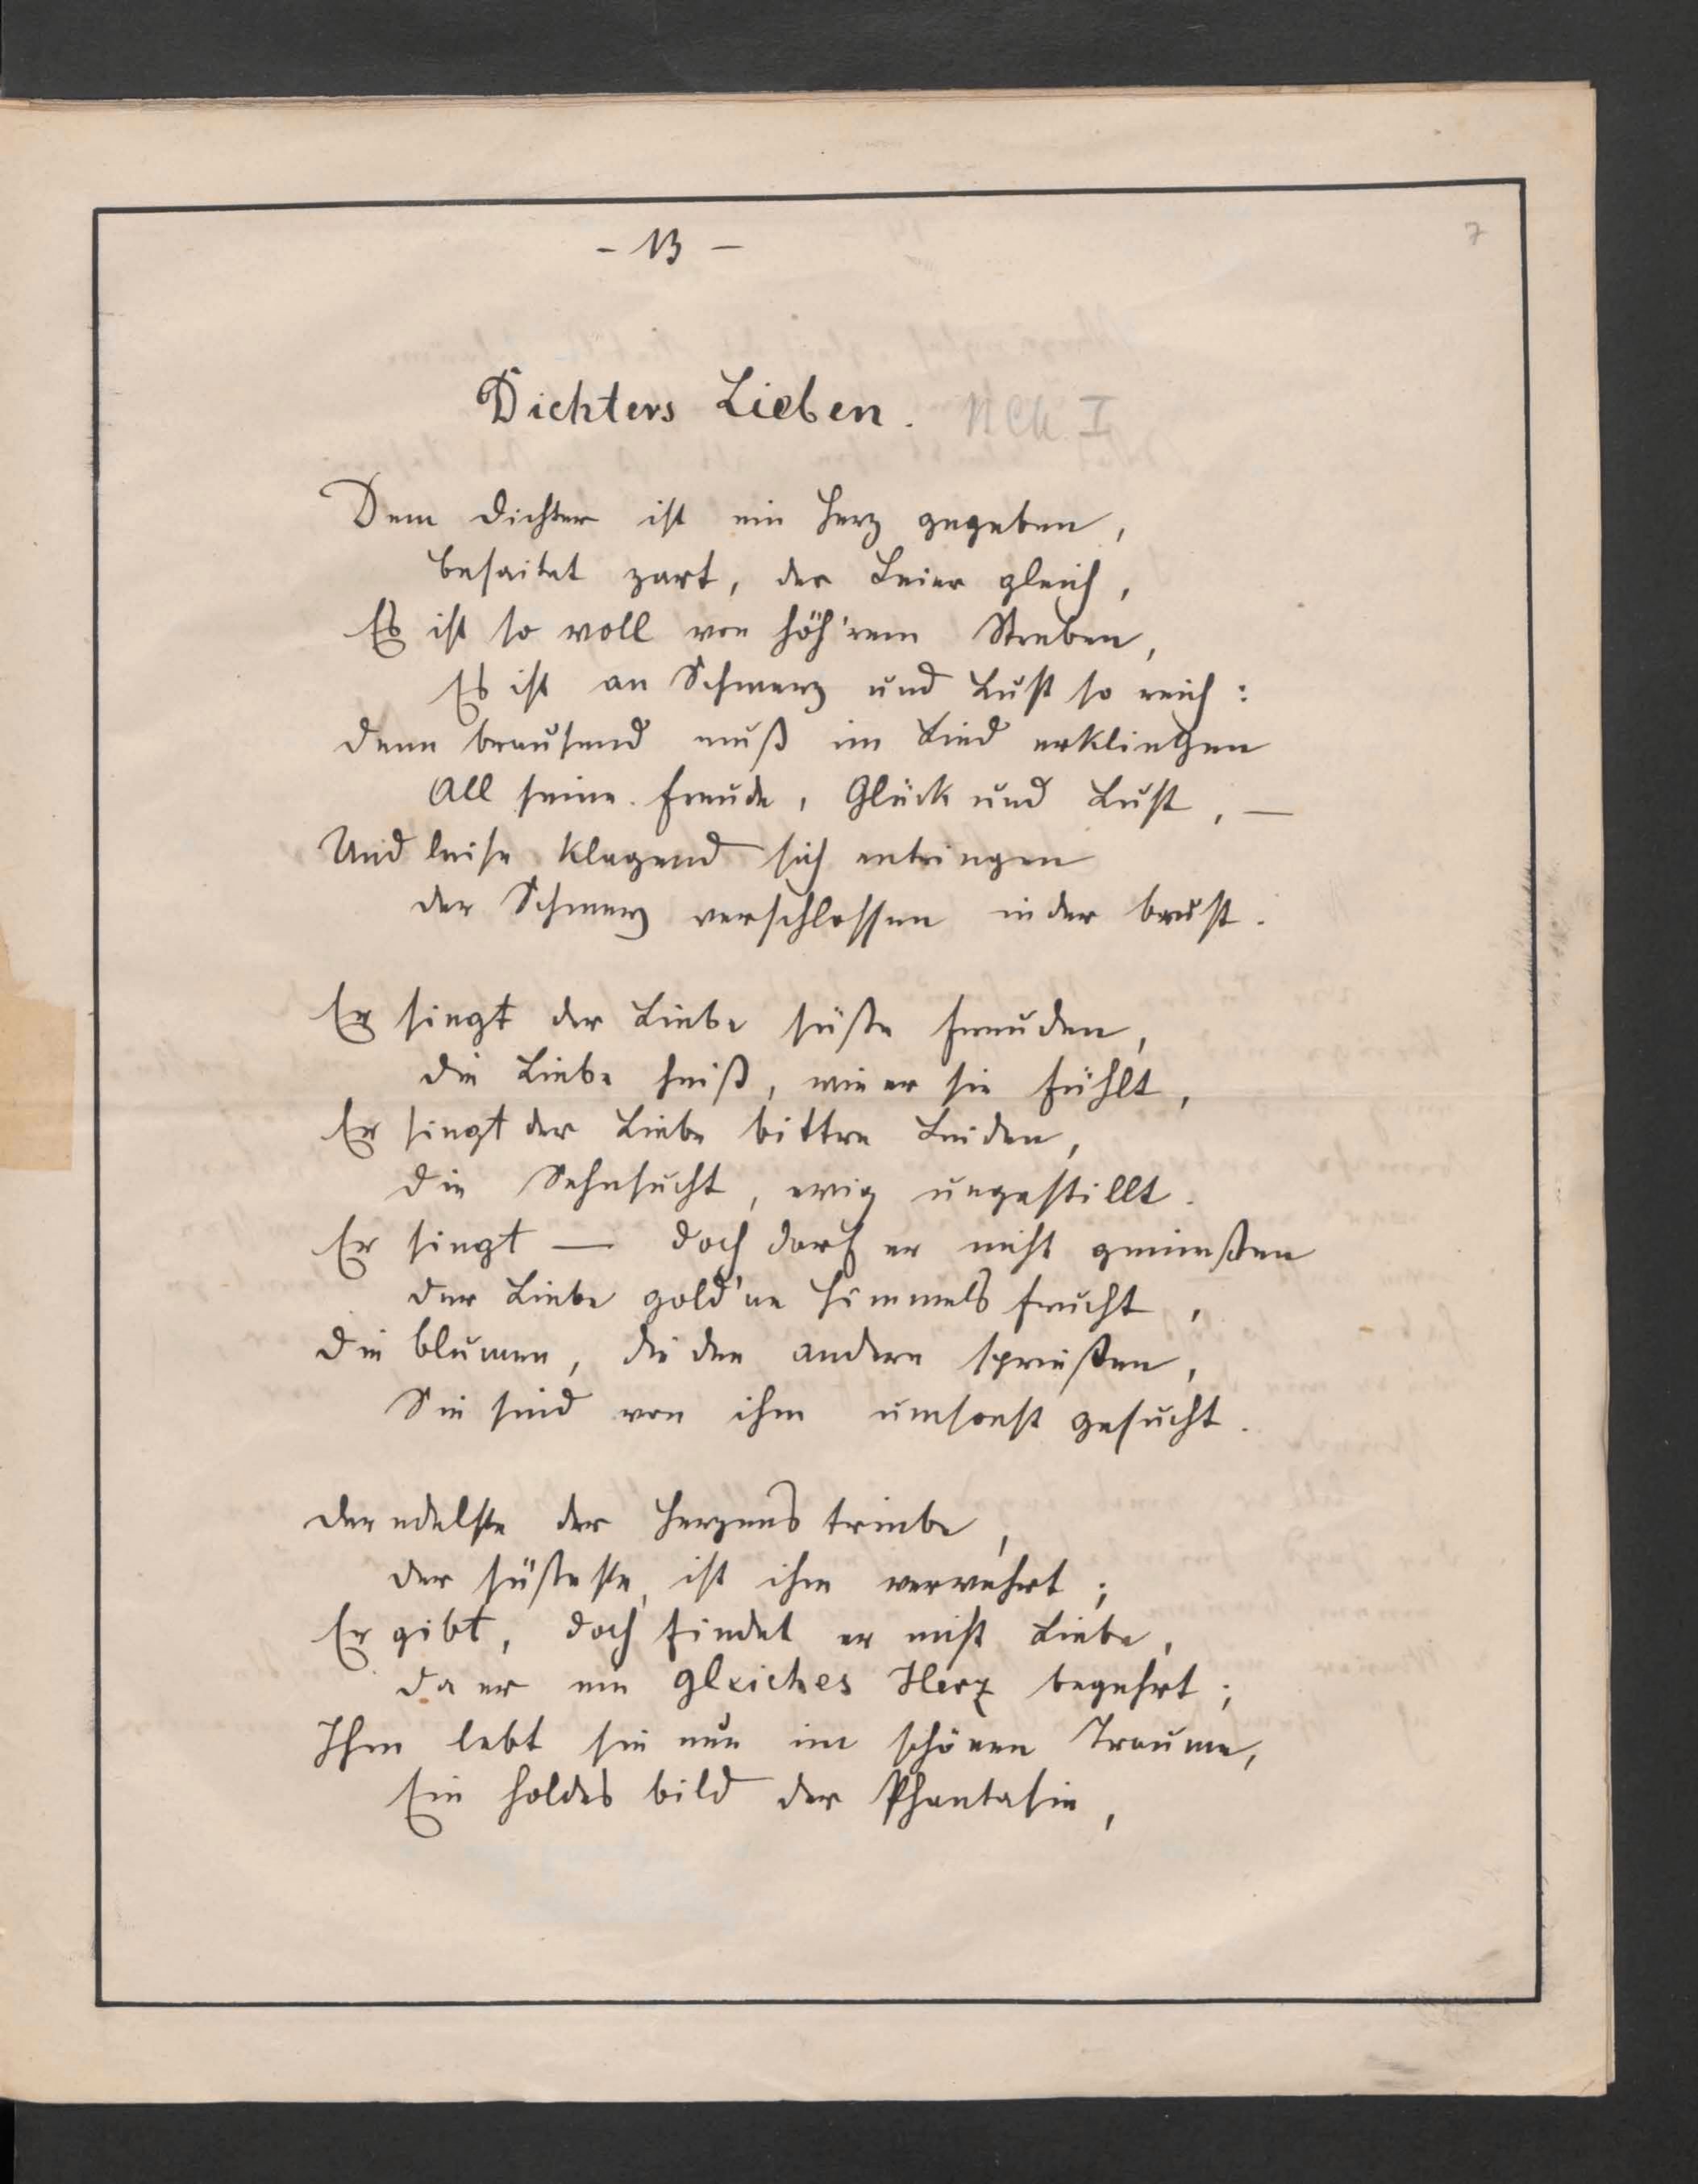 - 13 -
7
Dichters Lieben.
Dem Dichter ist ein Herz gegeben,
besaitet zart, der Leier gleich,
Es ist so voll von höh'rem Streben,
Es ist an Schmerz und Lust so reich:
Denn brausend muß im Lied erklingen
All seine Freude, Glück und Lust, —
Und leise klagend sich entringen
der Schmerz verschlossen in der brust.
Er singt der Liebe süße Freuden,
die Liebe heiß, wie er sie fühlt,
Er singt der Liebe bittre Leiden,
die Sehnsucht, ewig ungestillt.
Er singt — doch darf er nicht genießen
der Liebe gold'ne Himmels frucht,
die blumen, die den andern sprießen,
Sie sind von ihm umsonst gesucht.
der edelste der Herzens triebe,
der süßeste, ist ihm verwehrt;
Er gibt, doch findet er nicht Liebe,
da er ein gleiches Herz begehrt;
Ihm lebt sie nur im schönen Traume,
Ein holdes bild der Phantasie,